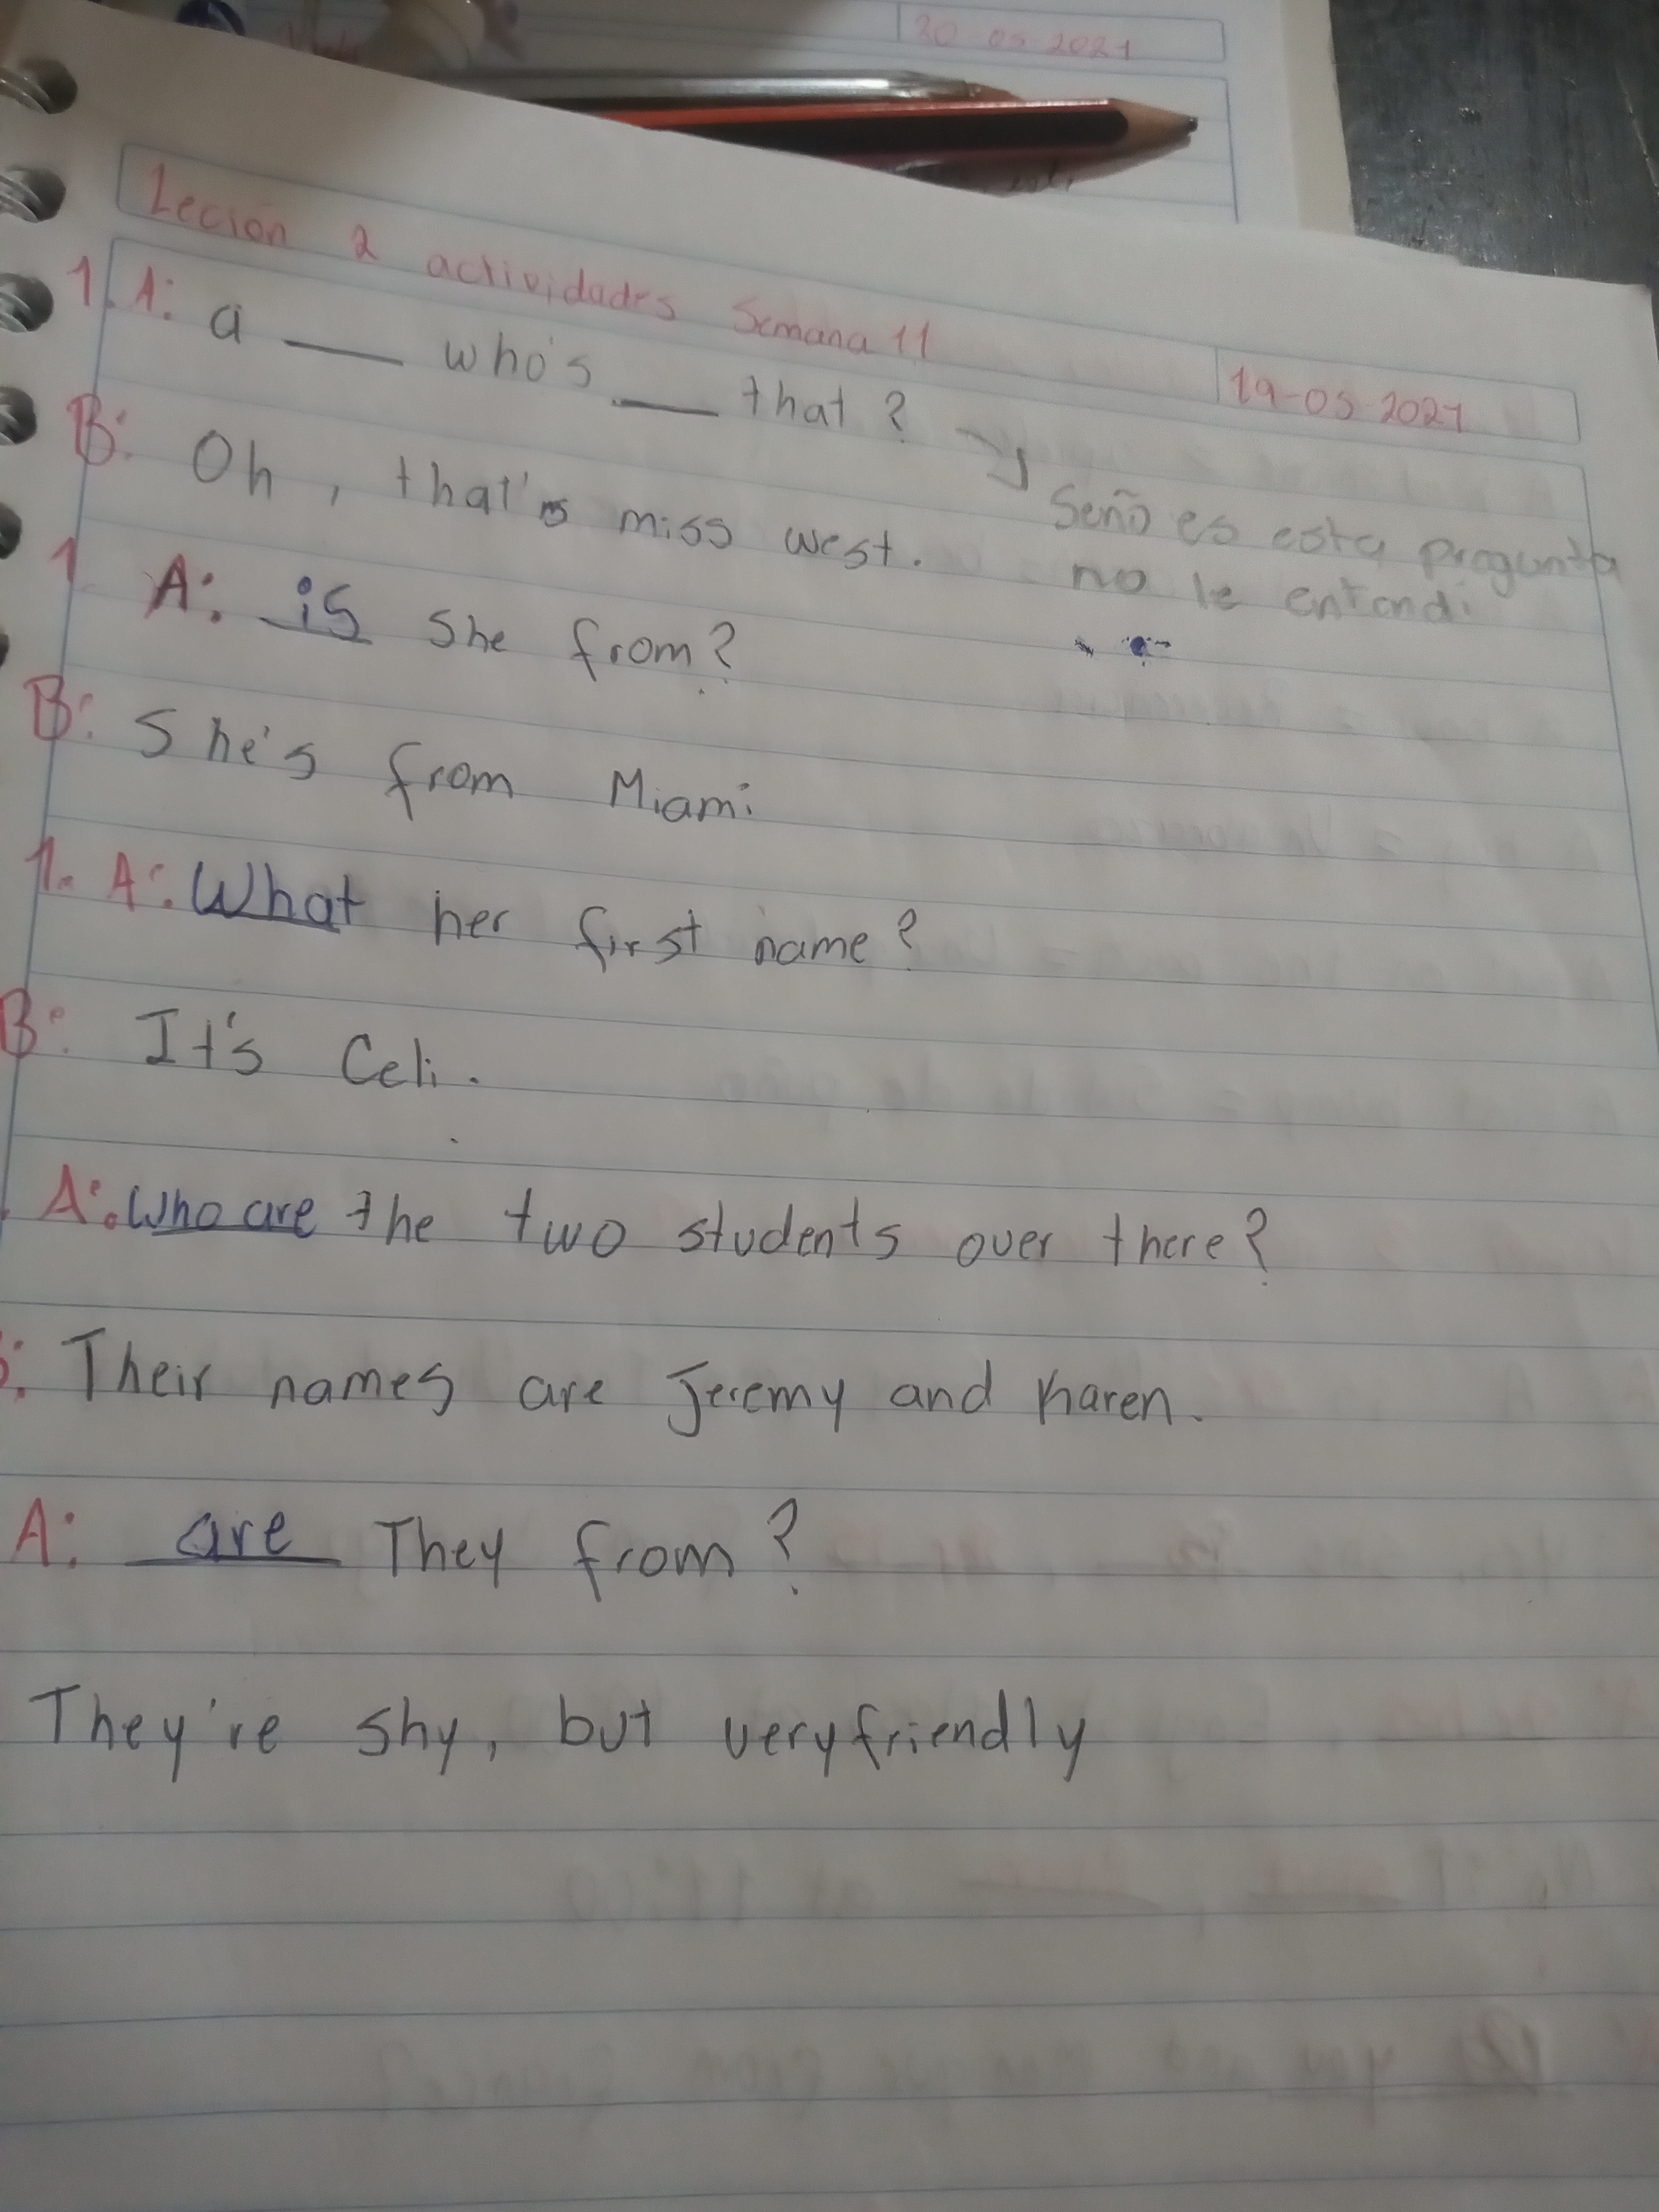 30-05-2021
Lecion 2 actividades Semana 11
19-05-2021
1. A: a ___ who's ___ that?
B: Oh, that's miss west.
Seño es esta pregunta
no le entendi
1 A: is she from?
B: She's from Miami
1. A: What her first name?
B: It's Celi.
A: Who are the two students over there?
: Their names are Jeremy and Karen.
A: are They from?
They're shy, but very friendly